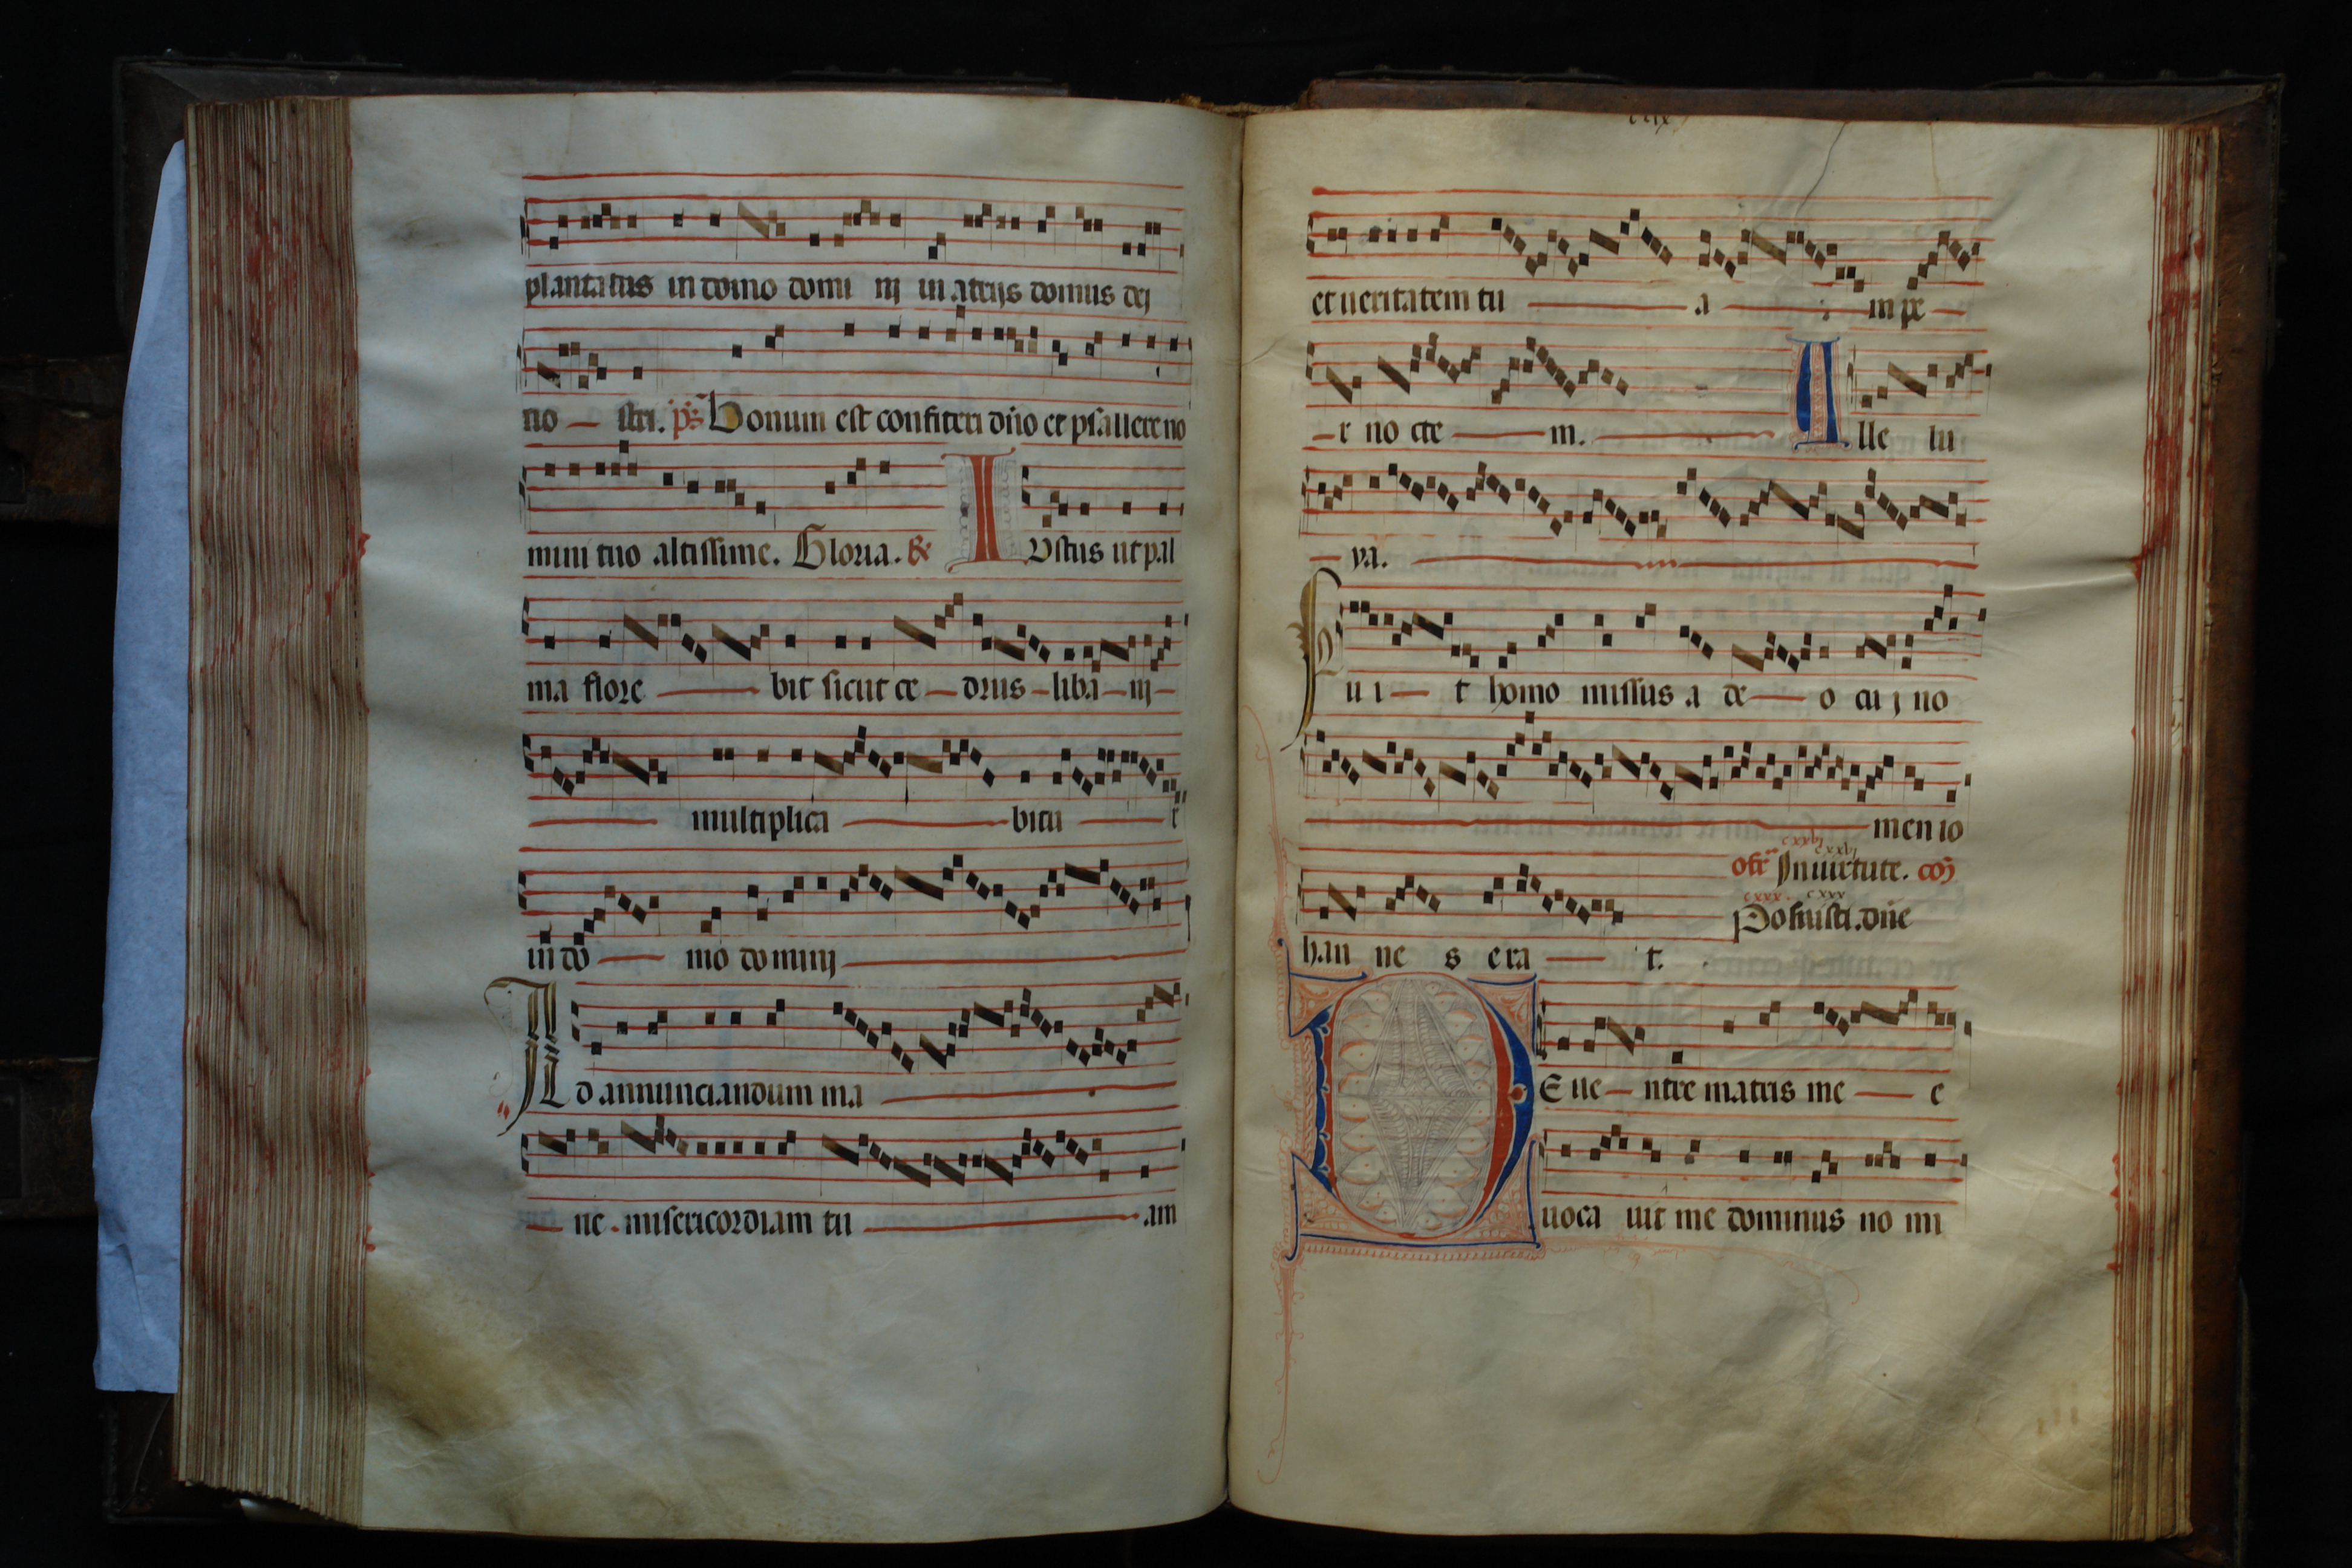 plantatus in domo domi nj in atrijs domus dej
no stri. ps Bonum est confiteri dño et psallere no
mini tuo altissime. Gloria. R IUstus ut pal
ma flore bit sicut ce drus liba nj
multiplica bitu r
in do mo dominj
AD annunciandum ma
ne misericordiam tu am
clix
et ueritatem tu a m pe
r no cte m. Alle lu
ya.
Fu i t homo missus a de o cu j no
men io
cxxvj cxxvj
ofr̄ In uirtute. com̄
cxxx. cxxx
Posuisti. dñe
han ne s era t.
DE ue ntre matris me e
uoca uit me dominus no mi